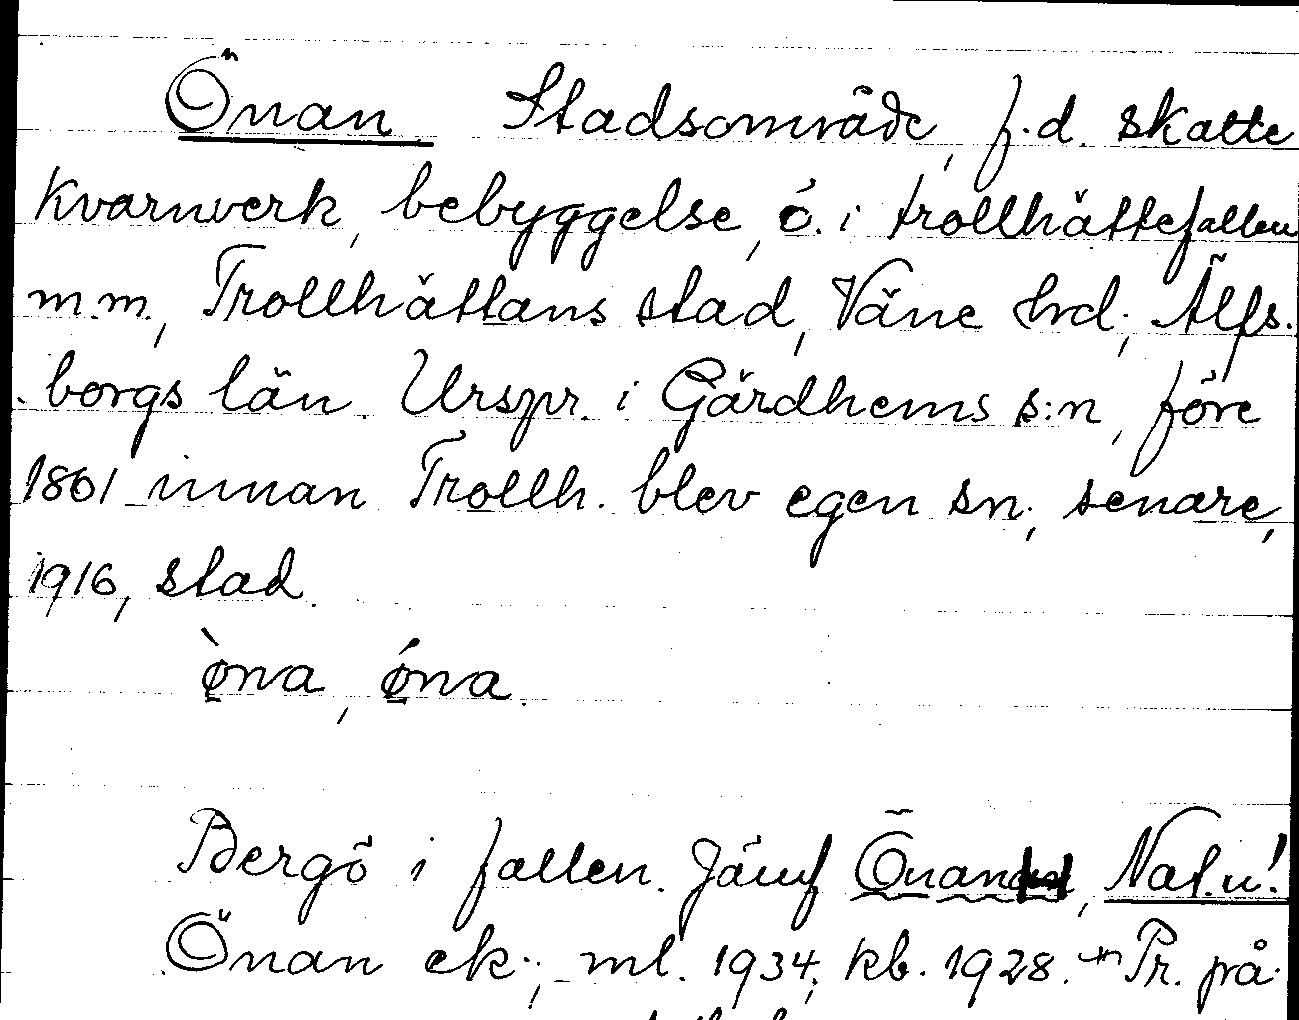 Önan Stadsområde, f.d. skatte
kvarnverk, bebyggelse, ö. i trollhättefallen
m.m., Trollhättans stad, Väne hrd., Älfs-
borgs län. Urspr. i Gärdhems s:n, före
1861 innan Trollh. blev egen sn., senare,
1916, stad.
ò̱na, ó̱na.
Bergö i fallen. Jämf Önan, Nat.n!
Önan ek., ml. 1934, kb. 1928. Pr. på